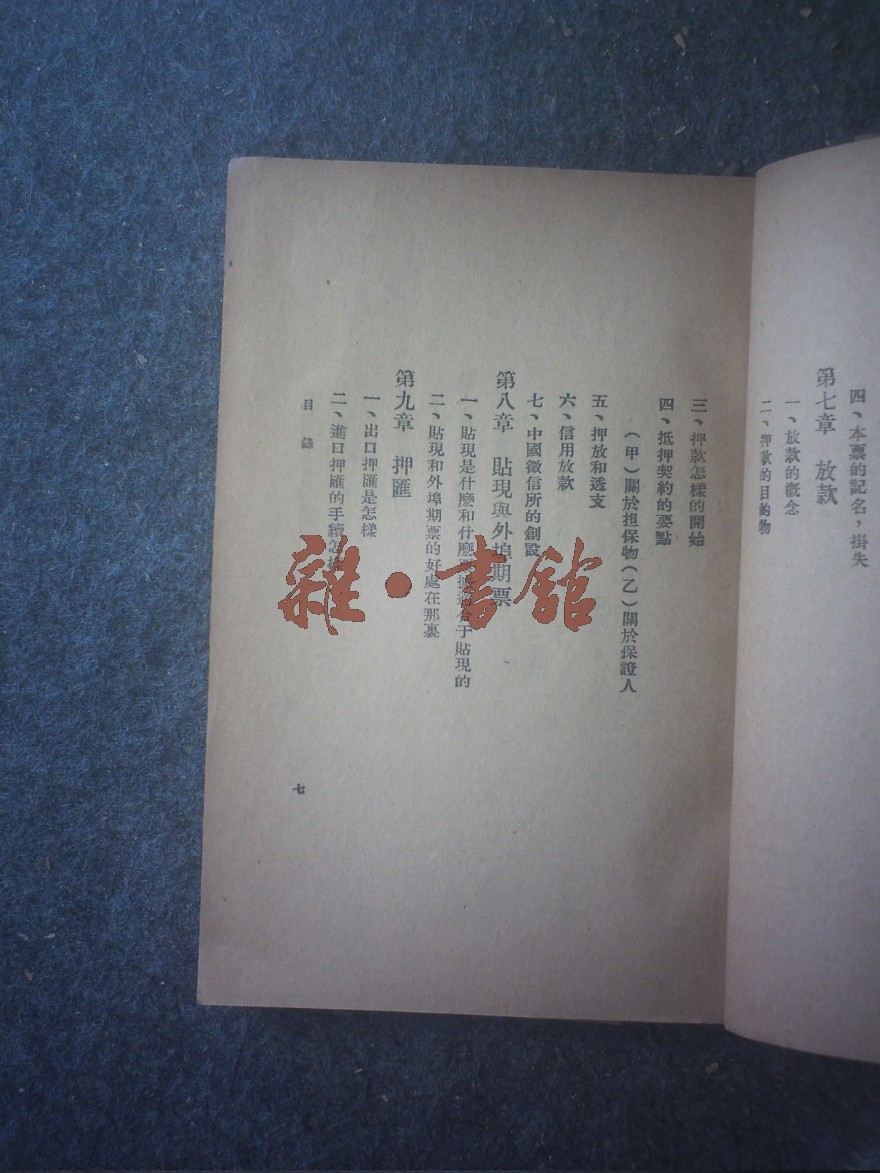 四、本票的記名，掛失
第七章　放款
一、放款的概念
二、押款的目的物
三、押款怎樣的開始
四、抵押契約的要點
（甲）關於担保物（乙）關於保證人
五、押放和透支
六、信用放款
七、中國徵信所的創設
第八章　貼現與外埠期票
一、貼現是什麽和什麽于貼現的
二、貼現和外埠期票的好處在那裏
第九章　押匯
一、出口押匯是怎樣
二、進口押匯的手續怎樣
目錄
七
雜·書館